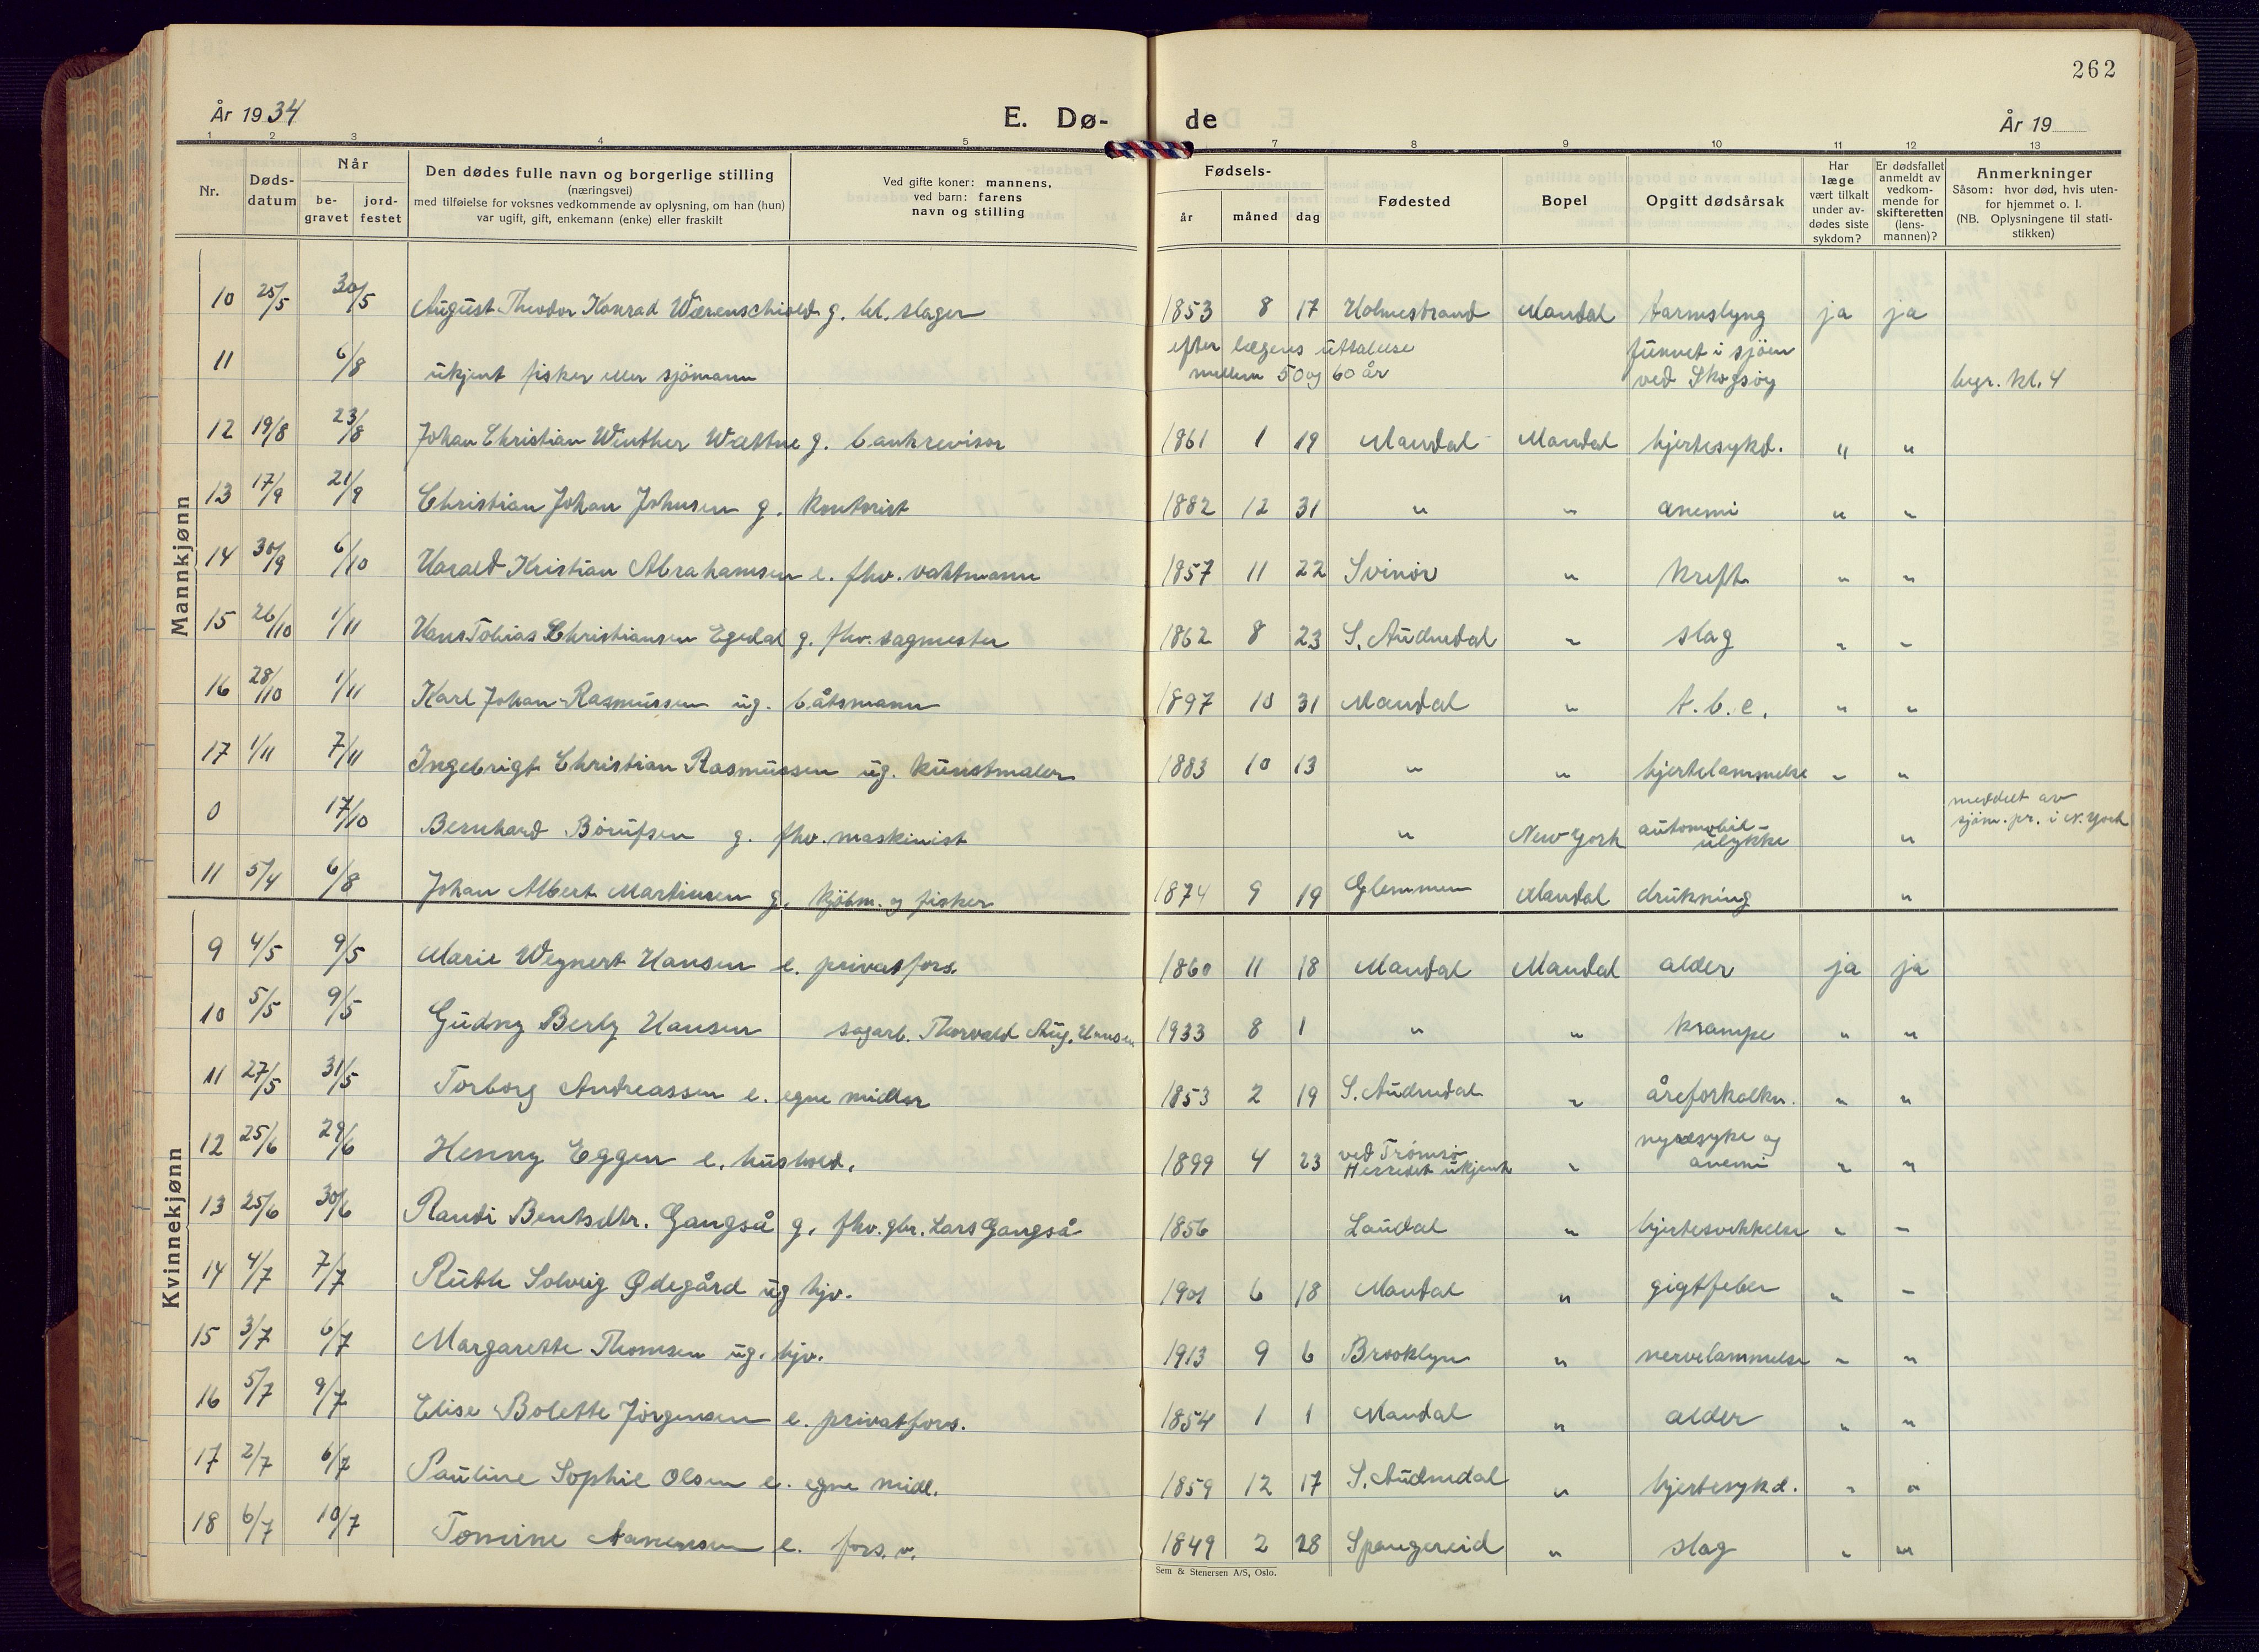 262
År 1934
E. Dø-
de
År 19
1 2 3 4 5 7 8 9 10 11 12 13
Nr.
Døds-
datum
Når
be-
gravet
jord-
festet
Den dødes fulle navn og borgerlige stilling
(næringsvei)
med tilføielse for voksnes vedkommende av oplysning, om han (hun)
var ugift, gift, enkemann (enke) eller fraskilt
Ved gifte koner: mannens,
ved barn: farens
navn og stilling
Fødsels-
år måned dag
Fødested
Bopel
Opgitt dødsårsak
Har
læge
vært tilkalt
under av-
dødes siste
sykdom?
Er dødsfallet
anmeldt av
vedkom-
mende for
skifteretten
(lens-
mannen)?
Anmerkninger
Såsom: hvor død, hvis uten-
for hjemmet o. l.
(NB. Oplysningene til stati-
stikken)
Mannkjønn
10 25/5 30/5 August Theodor Konrad Wærenschiold g. bl. slager 1853 8 17 Holmestrand Mandal tarmslyng ja ja
11 6/8 ukjent fisker eller sjömann efter lægens uttalelse
mellem 50 og 60 år
funnet i sjöen
ved Skogsöy
begr. kl. 4
12 19/8 23/8 Johan Christian Winther Wattne g. bankrevisor 1861 1 19 Mandal Mandal hjertesykd. " "
13 17/9 21/9 Christian Johan Johnsen g. kontorist 1882 12 31 " " anemi " "
14 30/9 6/10 Harald Kristian Abrahamsen e. fhv. vaktmann 1857 11 22 Svinör " kreft " "
15 26/10 1/11 Hans Tobias Christiansen Egedal g. fhv. sagmester 1862 8 23 S. Audnedal " slag " "
16 28/10 1/11 Karl Johan Rasmussen ug. båtsmann 1897 10 31 Mandal " t. b. c. " "
17 1/11 7/11 Ingebrigt Christian Rasmussen ug. kunstmaler 1883 10 13 " " hjertelammelse " "
0 17/10 Bernhard Börufsen g. fhv. maskinist " New York automobil-
ulykke "
meddelt av
sjöm. pr. i N. York
11 5/4 6/8 Johan Albert Martinsen g. kjöbm. og fisker 1874 9 19 Glemmen Mandal drukning "
Kvinnekjønn
9 4/5 9/5 Marie Wegnert Hansen e. privatfors. 1860 11 18 Mandal Mandal alder ja ja
10 5/5 9/5 Gudny Berly Hansen sagarb. Thorvald Aug. Hansen 1933 8 1 " " krampe " "
11 27/5 31/5 Torborg Andreassen e. egne midler 1853 2 19 S. Audnedal " åreforkalkn. " "
12 25/6 29/6 Henny Eggen e. hushold. 1899 4 23 ved Tromsö
Herredet ukjent " nyresyke og
anemi " "
13 25/6 30/6 Randi Bentsdtr. Gangså g. fhv. gbr. Lars Gangså 1856 Laudal " hjertesvekkelse " "
14 4/7 7/7 Ruth Solveig Ødegård ug hjv. 1901 6 18 Mandal " gigtfeber " "
15 3/7 6/7 Margarette Thomsen ug. hjv. 1913 9 6 Brooklyn " nervelammelse " "
16 5/7 9/7 Elise Bolette Jörgensen e. privatfors. 1854 1 1 Mandal " alder " "
17 2/7 6/7 Pauline Sophie Olsen e. egne midl. 1859 12 17 S. Audnedal " hjertesykd. " "
18 6/7 10/7 Tomine Aanensen e. fors. v. 1849 2 28 Spangereid " slag " "
Sem & Stenersen A/S, Oslo.